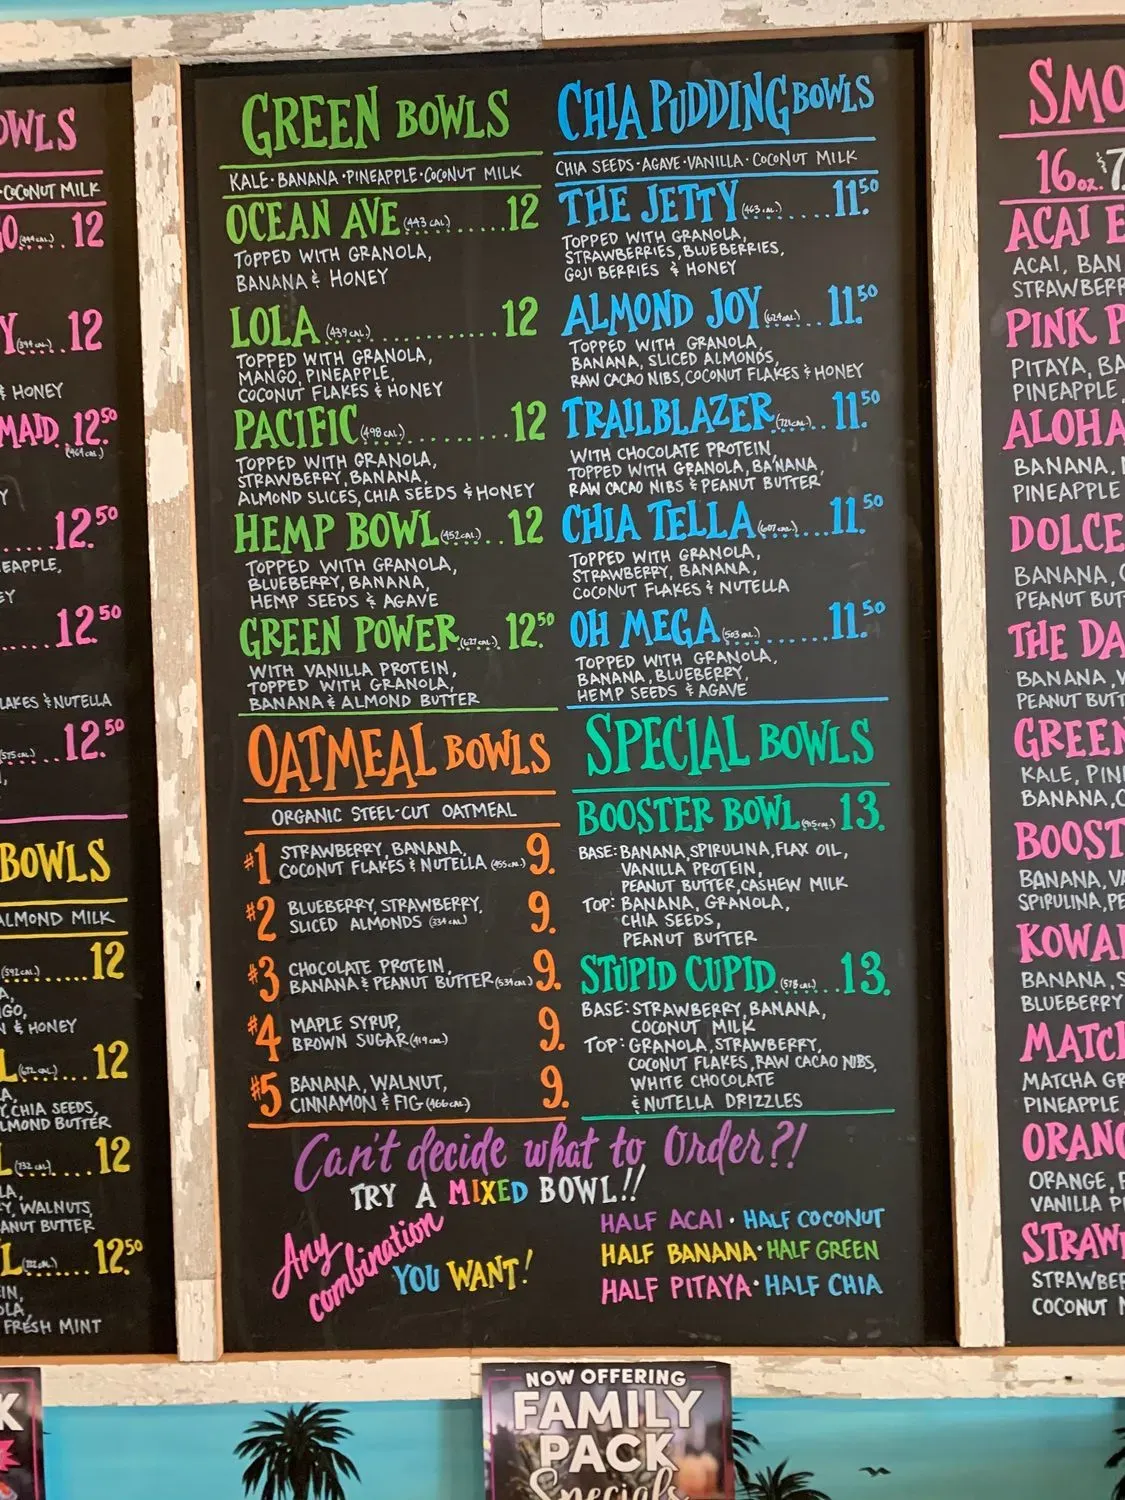 OWLS
COCONUT MILK
12
12
& HONEY
MAID 12.50
12.50
EAPPLE,
12.50
LAKES & NUTELLA
12.50
BOWLS
ALMOND MILK
12
& HONEY
12
CHIA SEEDS,
LMOND BUTTER
12
Y, WALNUTS,
ANUT BUTTER
12.50
FRESH MINT
GREEN BOWLS
KALE · BANANA · PINEAPPLE · COCONUT MILK
OCEAN AVE (443 CAL.)......12
TOPPED WITH GRANOLA,
BANANA & HONEY
LOLA (439 CAL.)............12
TOPPED WITH GRANOLA,
MANGO, PINEAPPLE,
COCONUT FLAKES & HONEY
PACIFIC (498 CAL.)..........12
TOPPED WITH GRANOLA,
STRAWBERRY, BANANA,
ALMOND SLICES, CHIA SEEDS & HONEY
HEMP BOWL (452 CAL.)...12
TOPPED WITH GRANOLA,
BLUEBERRY, BANANA,
HEMP SEEDS & AGAVE
GREEN POWER 12.50
WITH VANILLA PROTEIN,
TOPPED WITH GRANOLA,
BANANA & ALMOND BUTTER
CHIA PUDDING BOWLS
CHIA SEEDS · AGAVE · VANILLA · COCONUT MILK
THE JETTY (463 CAL.)......11.50
TOPPED WITH GRANOLA,
STRAWBERRIES, BLUEBERRIES,
GOJI BERRIES & HONEY
ALMOND JOY 11.50
TOPPED WITH GRANOLA,
BANANA, SLICED ALMONDS,
RAW CACAO NIBS, COCONUT FLAKES & HONEY
TRAILBLAZER 11.50
WITH CHOCOLATE PROTEIN,
TOPPED WITH GRANOLA, BANANA,
RAW CACAO NIBS & PEANUT BUTTER
CHIA TELLA (607 CAL.)....11.50
TOPPED WITH GRANOLA,
STRAWBERRY, BANANA,
COCONUT FLAKES & NUTELLA
OH MEGA (503 CAL.).......11.50
TOPPED WITH GRANOLA,
BANANA, BLUEBERRY,
HEMP SEEDS & AGAVE
OATMEAL BOWLS
ORGANIC STEEL-CUT OATMEAL
#1 STRAWBERRY, BANANA,
COCONUT FLAKES & NUTELLA (455 CAL.) 9.
#2 BLUEBERRY, STRAWBERRY,
SLICED ALMONDS (334 CAL.) 9.
#3 CHOCOLATE PROTEIN,
BANANA & PEANUT BUTTER (534 CAL.) 9.
#4 MAPLE SYRUP,
BROWN SUGAR (419 CAL.) 9.
#5 BANANA, WALNUT,
CINNAMON & FIG (466 CAL.) 9.
SPECIAL BOWLS
BOOSTER BOWL 13.
BASE: BANANA, SPIRULINA, FLAX OIL,
VANILLA PROTEIN,
PEANUT BUTTER, CASHEW MILK
TOP: BANANA, GRANOLA,
CHIA SEEDS,
PEANUT BUTTER
STUPID CUPID (578 CAL.)...13.
BASE: STRAWBERRY, BANANA,
COCONUT MILK
TOP: GRANOLA, STRAWBERRY,
COCONUT FLAKES, RAW CACAO NIBS,
WHITE CHOCOLATE
& NUTELLA DRIZZLES
Can't decide what to Order?!
TRY A MIXED BOWL!!
Any combination
YOU WANT!
HALF ACAI · HALF COCONUT
HALF BANANA · HALF GREEN
HALF PITAYA · HALF CHIA
SMO
16 oz. $7
ACAI E
ACAI, BAN
STRAWBERR
PINK P
PITAYA, BA
PINEAPPLE
ALOHA
BANANA,
PINEAPPLE
DOLCE
BANANA, C
PEANUT BUT
THE DA
BANANA, V
PEANUT BUTT
GREEN
KALE, PIN
BANANA, C
BOOST
BANANA, VA
SPIRULINA, PE
KOWA
BANANA, S
BLUEBERRY
MATCH
MATCHA GR
PINEAPPLE
ORANG
ORANGE, P
VANILLA P
STRAW
STRAWBER
COCONUT M
NOW OFFERING
FAMILY
PACK
Specials
K